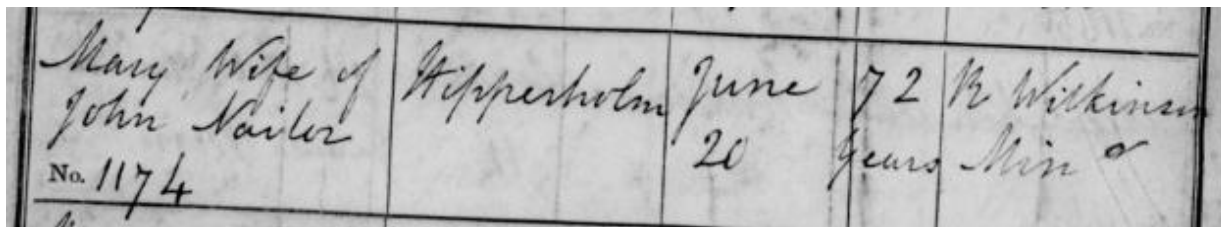 Mary Wife of
John Nailor
No. 1174
Hipperholm
June
20
72
Years
R Wilkinson
Minr